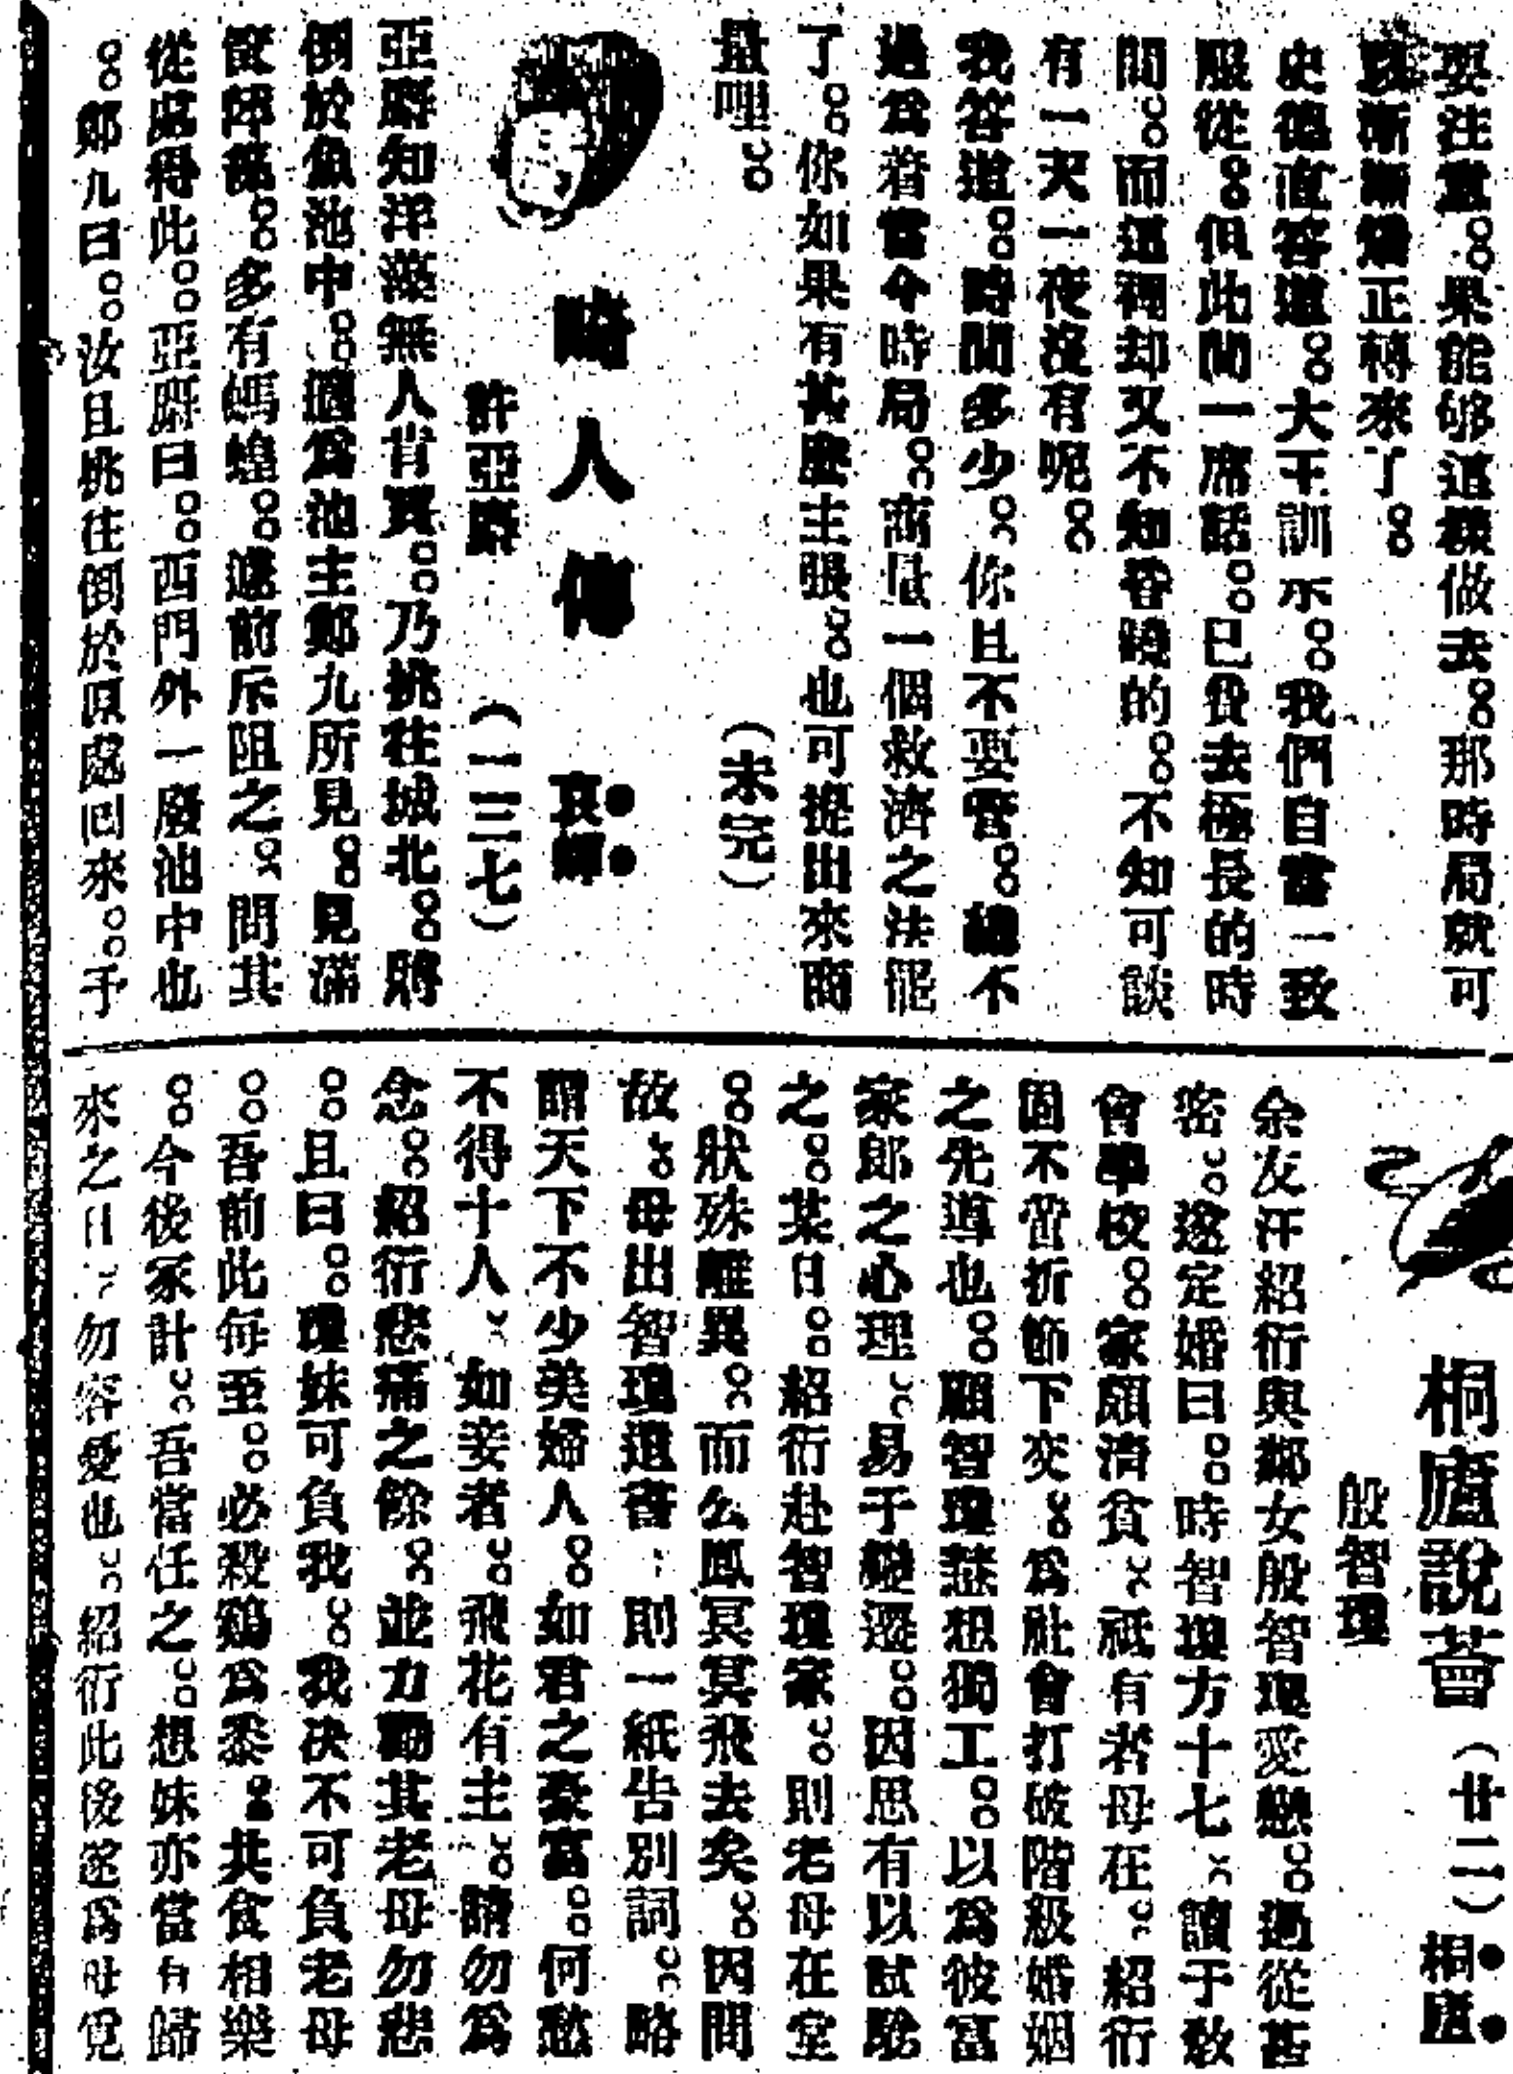 要注重。果能够這樣做去。那時局就可
以漸漸燐正轉來了。
史德直答道。大王訓示。我們自當一致
服從。但此間一席話。已費去極長的時
間。而這裡却又不知昏曉的。不知可談
有一天一夜沒有呢。
我答道。時間多少。你且不要管。總不
過爲着當今時局。商量一個救濟之法罷
了。你如果有甚麽主張。也可提出來商
量哩。
(未完)
畸人傳
哀蟬
許亞爵
(一三七)
亞爵知洋藻無人肯買。乃挑往城北。將
倒於魚池中。適爲池主鄭九所見。見滿
筐碎藻。多有螞蝗。遽前斥阻之。問其
從處得此。亞爵曰。西門外一廢池中也
。鄭九曰。汝且挑往倒於原處回來。予
桐廬說薈(廿二)桐廬
殷智瓊
余友汗紹衍與鄰女殷智瓊愛戀。過從甚
密。遂定婚曰。時智瓊方十七。讀于敎
會學校。家頗清貧。祇有老母在。紹衍
固不嘗折節下交。爲社會打破階級婚姻
之先導也。顧智瓊慧想獨工。以爲彼富
家郎之心理。易于變遷。因思有以試驗
之。某日。紹衍赴智瓊家。則老母在室
。狀殊離異。而么鳳冥冥飛去矣。因問
故。母出智瓊遺書。則一紙告別詞。略
謂天下不少美婦人。如君之豪富。何愁
不得十人。如妾者。飛花有主。請勿爲
念。紹衍悲痛之餘。並力勸其老母勿悲
。且曰。瓊妹可負我。我决不可負老母
。吾前此每至。必殺鷄爲黍。共食相樂
。今後家計。吾當任之。想妹亦當有歸
來之日。勿容憂也。紹衍此後遂爲母覓